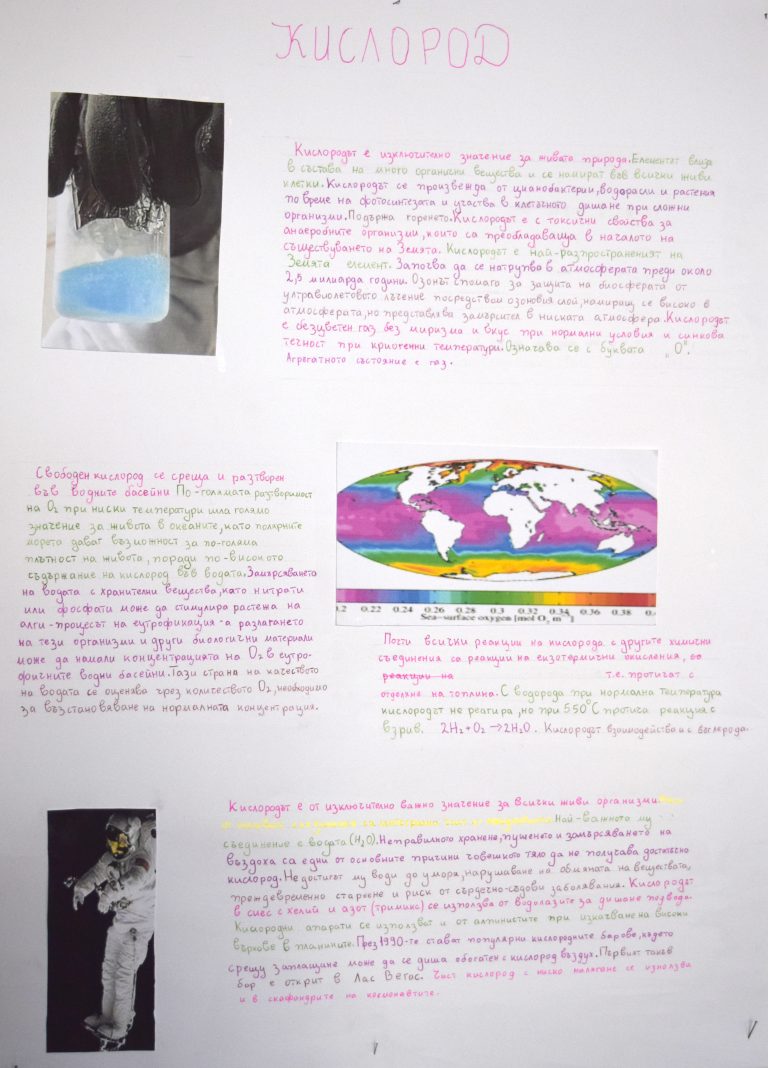 КИСЛОРОД
Кислородът е изключително значение за живата природа. Елементът влиза
в състава на много органични вещества и се намират във всички живи
клетки. Кислородът се произвежда от цианобактерии, водорасли и растения
по време на фотосинтезата и участва в клетъчното дишане при сложни
организми. Подържа горенето. Кислородът е с токсични свойства за
анаеробните организми, които са преобладаваща в началото на
съществуването на Земята. Кислородът е най-разпространеният на
Земята елемент. Започва да се натрупва в атмосферата преди около
2,5 милиарда години. Озонът спомага за защита на биосферата от
ултравиолетовото лъчение посредством озоновия слой, намиращ се високо в
атмосферата, но представлява замърсител в ниската атмосфера. Кислородът
е безцветен газ без миризма и вкус при нормални условия и синкова
течност при криогенни температури. Означава се с буквата „O".
Агрегатното състояние е газ.
Свободен кислород се среща и разтворен
във водните басейни По-голямата разтворимост
на O₂ при ниски температури има голямо
значение за живота в океаните, като полярните
морета дават възможност за по-голяма
плътност на живота, поради по-високото
съдържание на кислород във водата. Замърсяването
на водата с хранителни вещества, като нитрати
или фосфати може да стимулира растежа на
алги - процесът на еутрофикация - а разлагането
на тези организми и други биологични материали
може да намали концентрацията на O₂ в еутро-
фичните водни басейни. Тази страна на качеството
на водата се оценява чрез количеството O₂, необходимо
за възстановяване на нормалната концентрация.
0.22 0.24 0.26 0.28 0.3 0.32 0.34 0.36 0.38
Sea-surface oxygen [mol O₂ m⁻³]
Почти всички реакции на кислорода с другите химични
съединения са реакции на екзотермични окисления,
реакции на т.е. протичат с
отделяне на топлина. С водорода при нормална температура
кислородът не реагира, но при 550°C протича реакция с
взрив. 2H₂+O₂→2H₂O. Кислородът взаимодейства и с въглерода.
Кислородът е от изключително важно значение за всички живи организми.
Най-важното му
съединение е водата (H₂O). Неправилното хранене, пушенето и замърсяването на
въздуха са едни от основните причини човешкото тяло да не получава достатъчно
кислород. Недостигът му води до умора, нарушаване на обмяната на веществата,
преждевременно стареене и риск от сърдечно-съдови заболявания. Кислородът
в смес с хелий и азот (тримикс) се използва от водолазите за дишане под вода.
Кислородни апарати се използват и от алпинистите при изкачване на високи
върхове в планините. През 1990-те стават популярни кислородните барове, където
срещу заплащане може да се диша обогатен с кислород въздух. Първият такъв
бар е открит в Лас Вегас. Чист кислород с ниско налягане се използва
и в скафандрите на космонавтите.